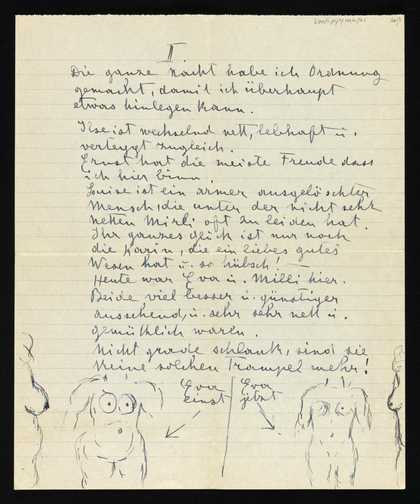 II.
Die ganze Nacht habe ich Ordnung
gemacht, damit ich überhaupt
etwas hinlegen kann.
Ilse ist wechselnd nett, lebhaft u.
zugleich.
Ernst hat die meiste Freude dass
ich hier binn.
Luise ist ein armer ausgelöschter
Mensch, die unter der nicht sehr
netten Mirli oft zu leiden hat.
Ihr ganzes Glück ist nur noch
die Karin, die ein liebes gutes
Wesen hat u. so hübsch!
Heute war Eva u. Milli hier.
Beide viel besser u. günstiger
aussehend, u. sehr sehr nett u.
gemütlich waren.
Nicht grade schlank, sind sie
keine solchen Trampel mehr!
Eva einst
Eva jetzt